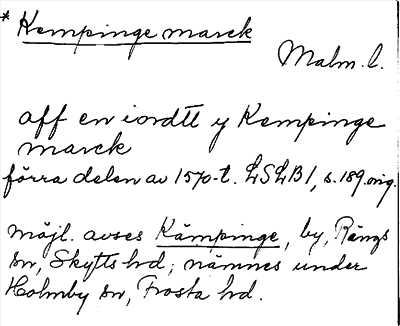 * Kempinge marck
Malm. l.
aff en iordtt y Kempinge
marck
förra delen av 1570-t. LSLB1, s. 189 orig.
möjl. avses Kämpinge, by, Rängs
sn, Skytts hd; nämnes under
Holmby sn, Frosta hd.